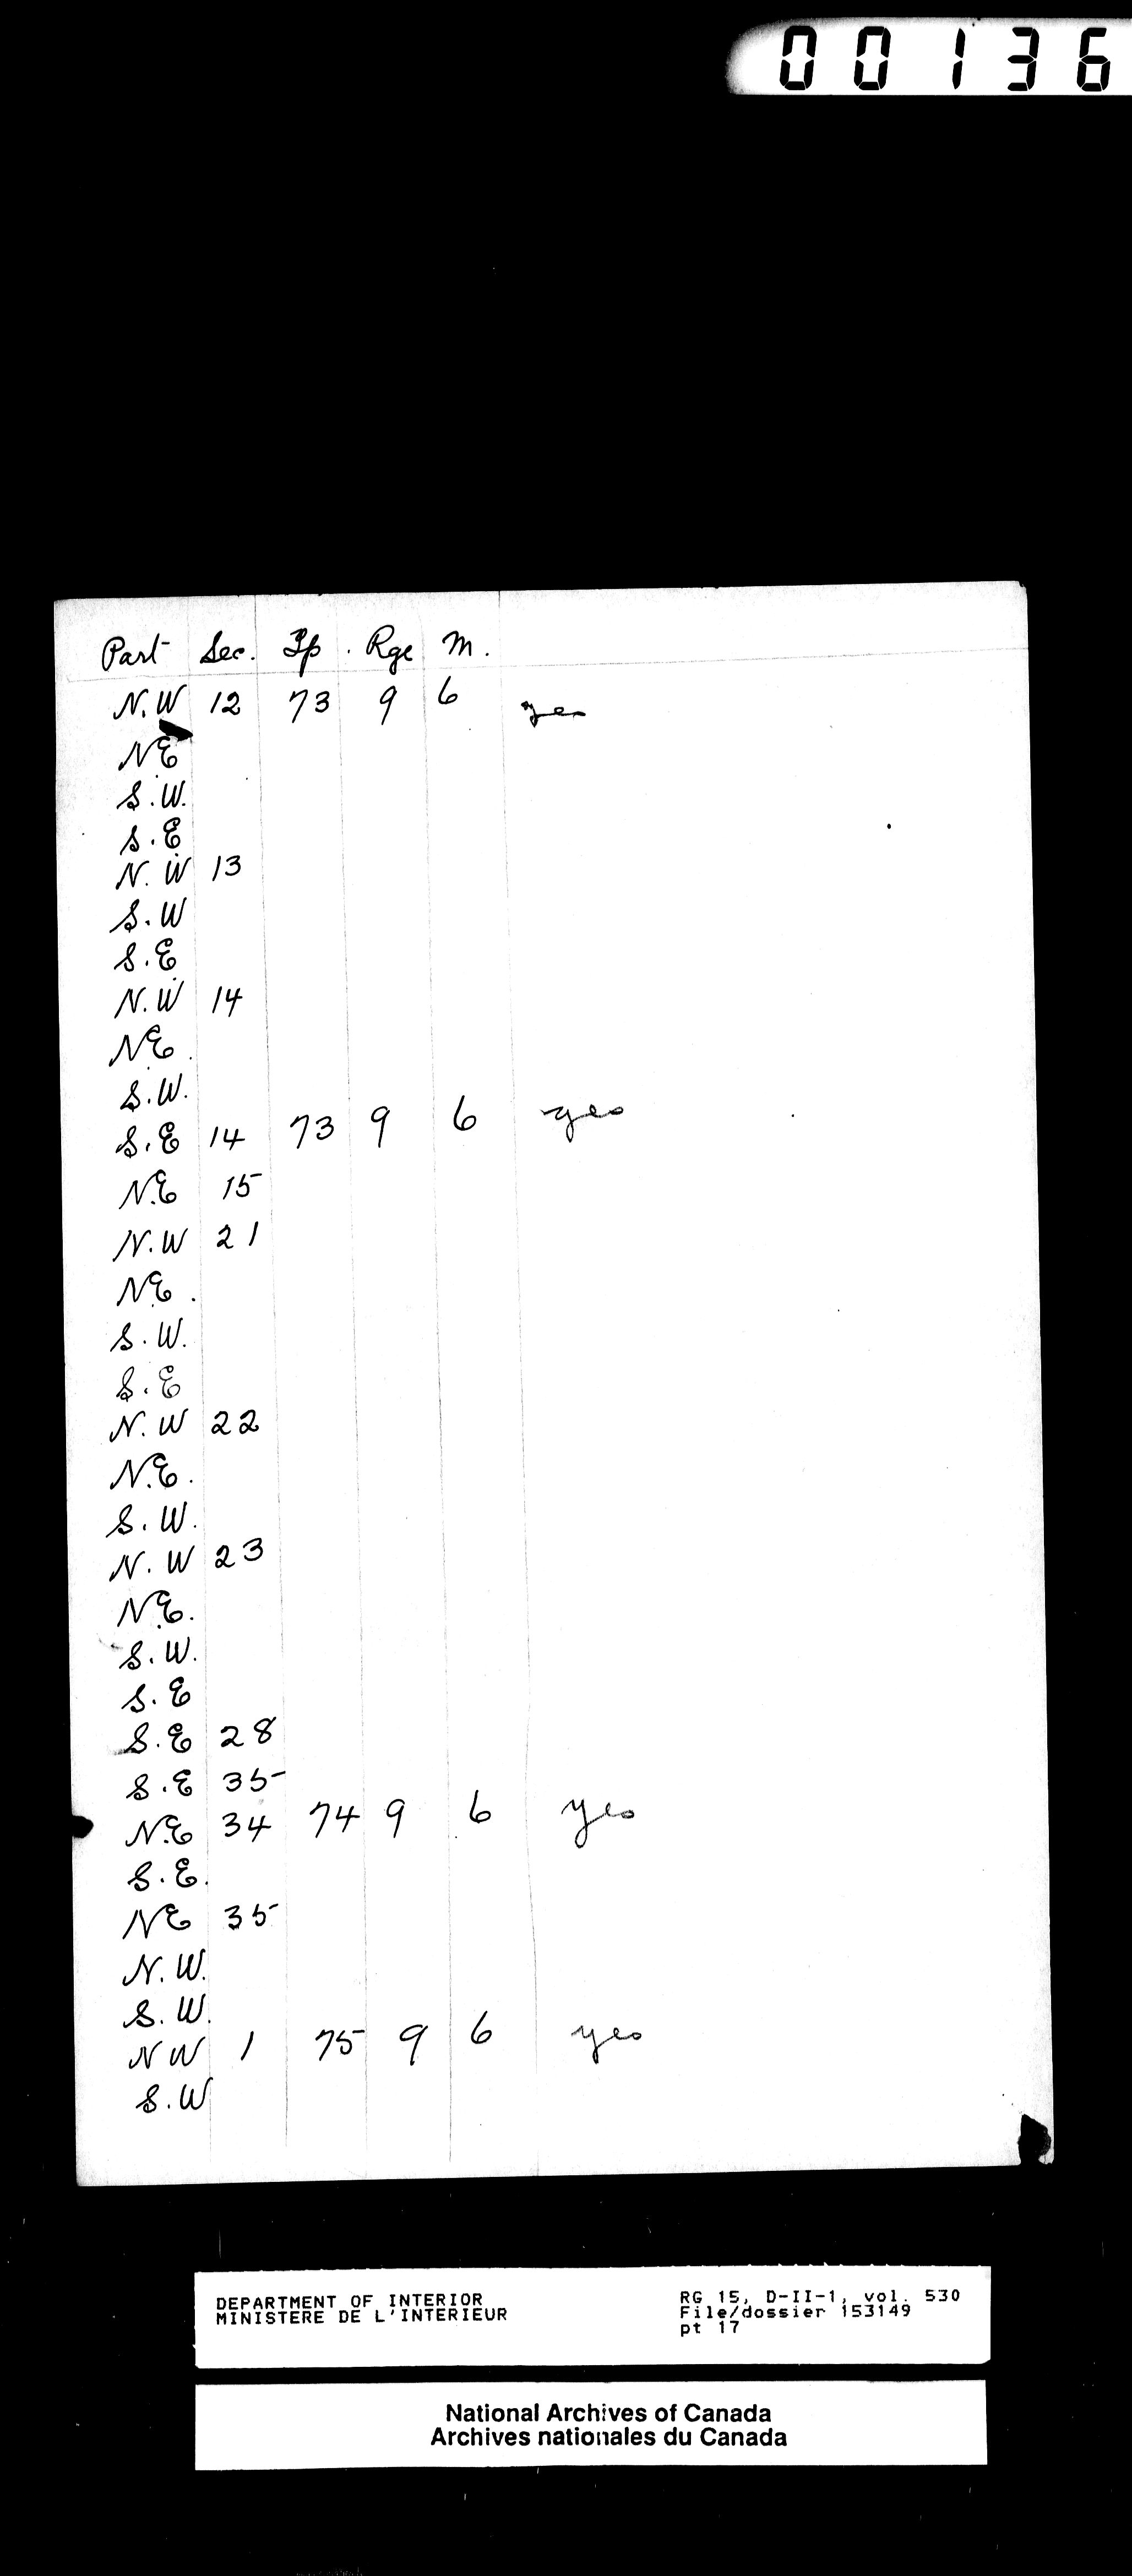 00136
Part Sec. Tp. Rge M.
N.W 12 73 9 6 yes
NE
S.W.
S.E
N.W 13
S.W
S.E
N.W 14
NE.
S.W.
S.E 14 73 9 6 yes
N.E 15
N.W 21
NE.
S.W.
S.E
N.W 22
N.E.
S.W.
N.W 23
NE.
S.W.
S.E
S.E 28
S.E 35
N.E 34 74 9 6 yes
S.E.
NE 35
N.W.
S.W.
NW 1 75 9 6 yes
S.W
DEPARTMENT OF INTERIOR
MINISTERE DE L'INTERIEUR
RG 15, D-II-1, vol. 530
File/dossier 153149
pt 17
National Archives of Canada
Archives nationales du Canada